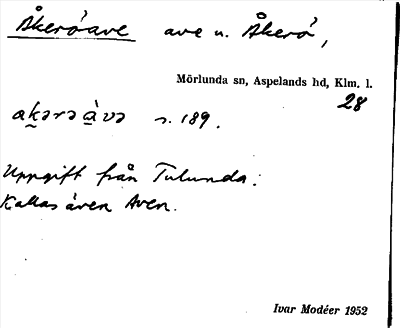 Åkeröave ave u. Åkerö,
Mörlunda sn, Aspelands hd, Klm. l.
28
ak̬ərə à̱və s. 189.
Uppgift från Tulunda.
Kallas även Aven.
Ivar Modéer 1952